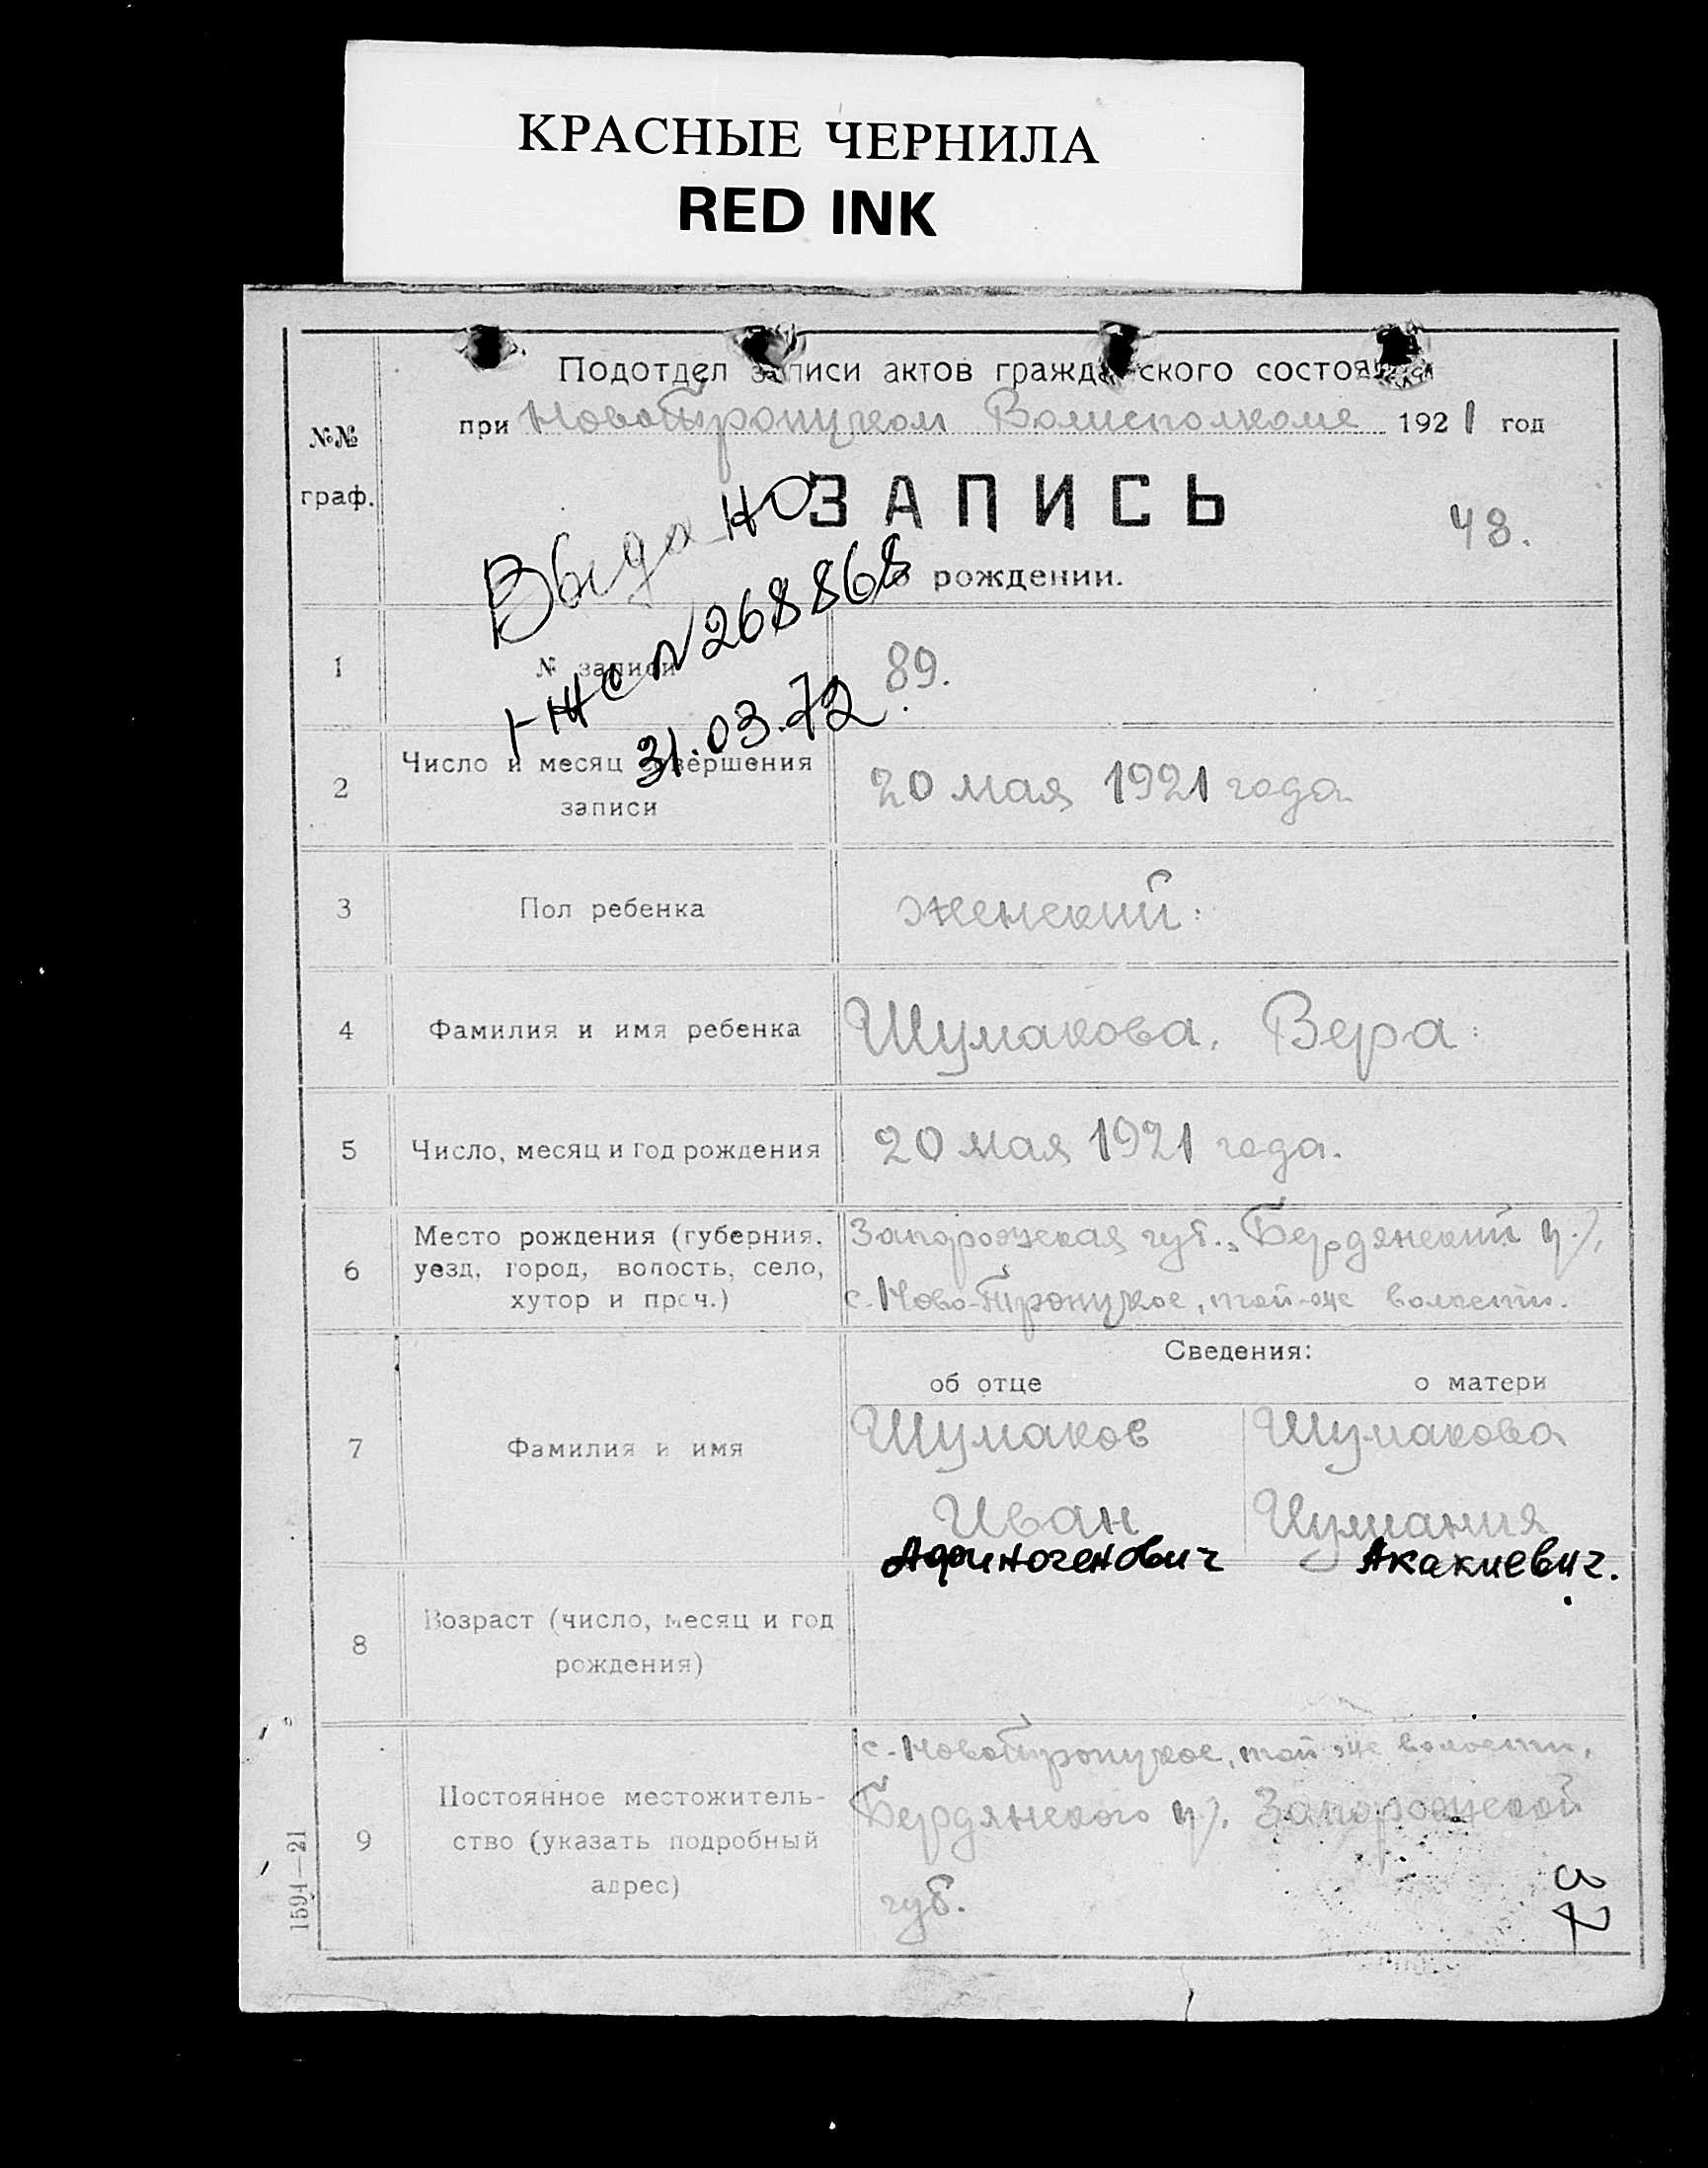 КРАСНЫЕ ЧЕРНИЛА
RED INK
Подотдел записи актов гражданского состояния
№№ граф.
при Новотроицком Волисполкоме 1921 год
ЗАПИСЬ
48.
о рождении.
Выдано
I-ЖС №268868
31.03.72
1 № записи 89.
2 Число и месяц совершения записи 20 мая 1921 года
3 Пол ребенка женский:
4 Фамилия и имя ребенка Шумакова, Вера:
5 Число, месяц и год рождения 20 мая 1921 года.
6 Место рождения (губерния,
уезд, город, волость, село,
хутор и проч.)
Запорожская губ., Бердянский у.,
с. Ново-Троицкое, той-же волости.
Сведения:
об отце о матери
7 Фамилия и имя
Шумаков Шумакова
Иван
Афиногенович Акакиевич.
8 Возраст (число, месяц и год
рождения)
9 Постоянное местожитель-
ство (указать подробный
адрес)
с. Новотроицкое, той же волости,
Бердянского у. Запорожской
губ.
37
1594—21